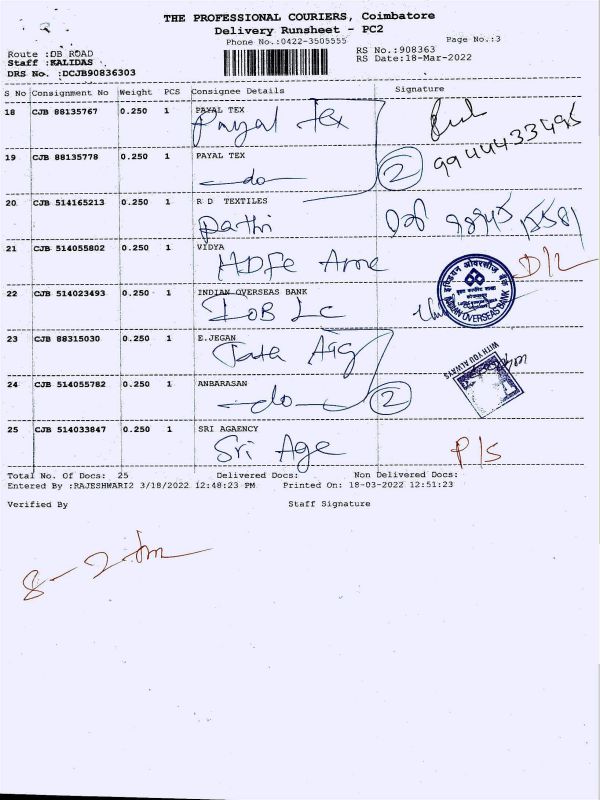 THE PROFESSIONAL COURIERS, Coimbatore
Delivery Runsheet - PC2
Phone No.:0422-3505555
Page No.:3
Route :DB ROAD
Staff :KALIDAS
DRS No. :DCJB90836303
RS No.:908363
RS Date:18-Mar-2022
S No Consignment No Weight PCS Consignee Details Signature
18 CJB 88135767 0.250 1 PAYAL TEX
Payal Tex
9944433495
19 CJB 88135778 0.250 1 PAYAL TEX
do 2
20 CJB 514165213 0.250 1 R D TEXTILES
Parthi
21 CJB 514055802 0.250 1 VIDYA
HDFC D/L
22 CJB 514023493 0.250 1 INDIAN OVERSEAS BANK
IOB LC
इण्डियन ओवरसीज़ बैंक
INDIAN OVERSEAS BANK
23 CJB 88315030 0.250 1 E.JEGAN
Tata Aig
WITH YOU ALWAYS
24 CJB 514055782 0.250 1 ANBARASAN
do 2
25 CJB 514033847 0.250 1 SRI AGAENCY
Sri Age P/S
Total No. Of Docs: 25 Delivered Docs: Non Delivered Docs:
Entered By :RAJESHWARI2 3/18/2022 12:48:23 PM Printed On: 18-03-2022 12:51:23
Verified By Staff Signature
8-2